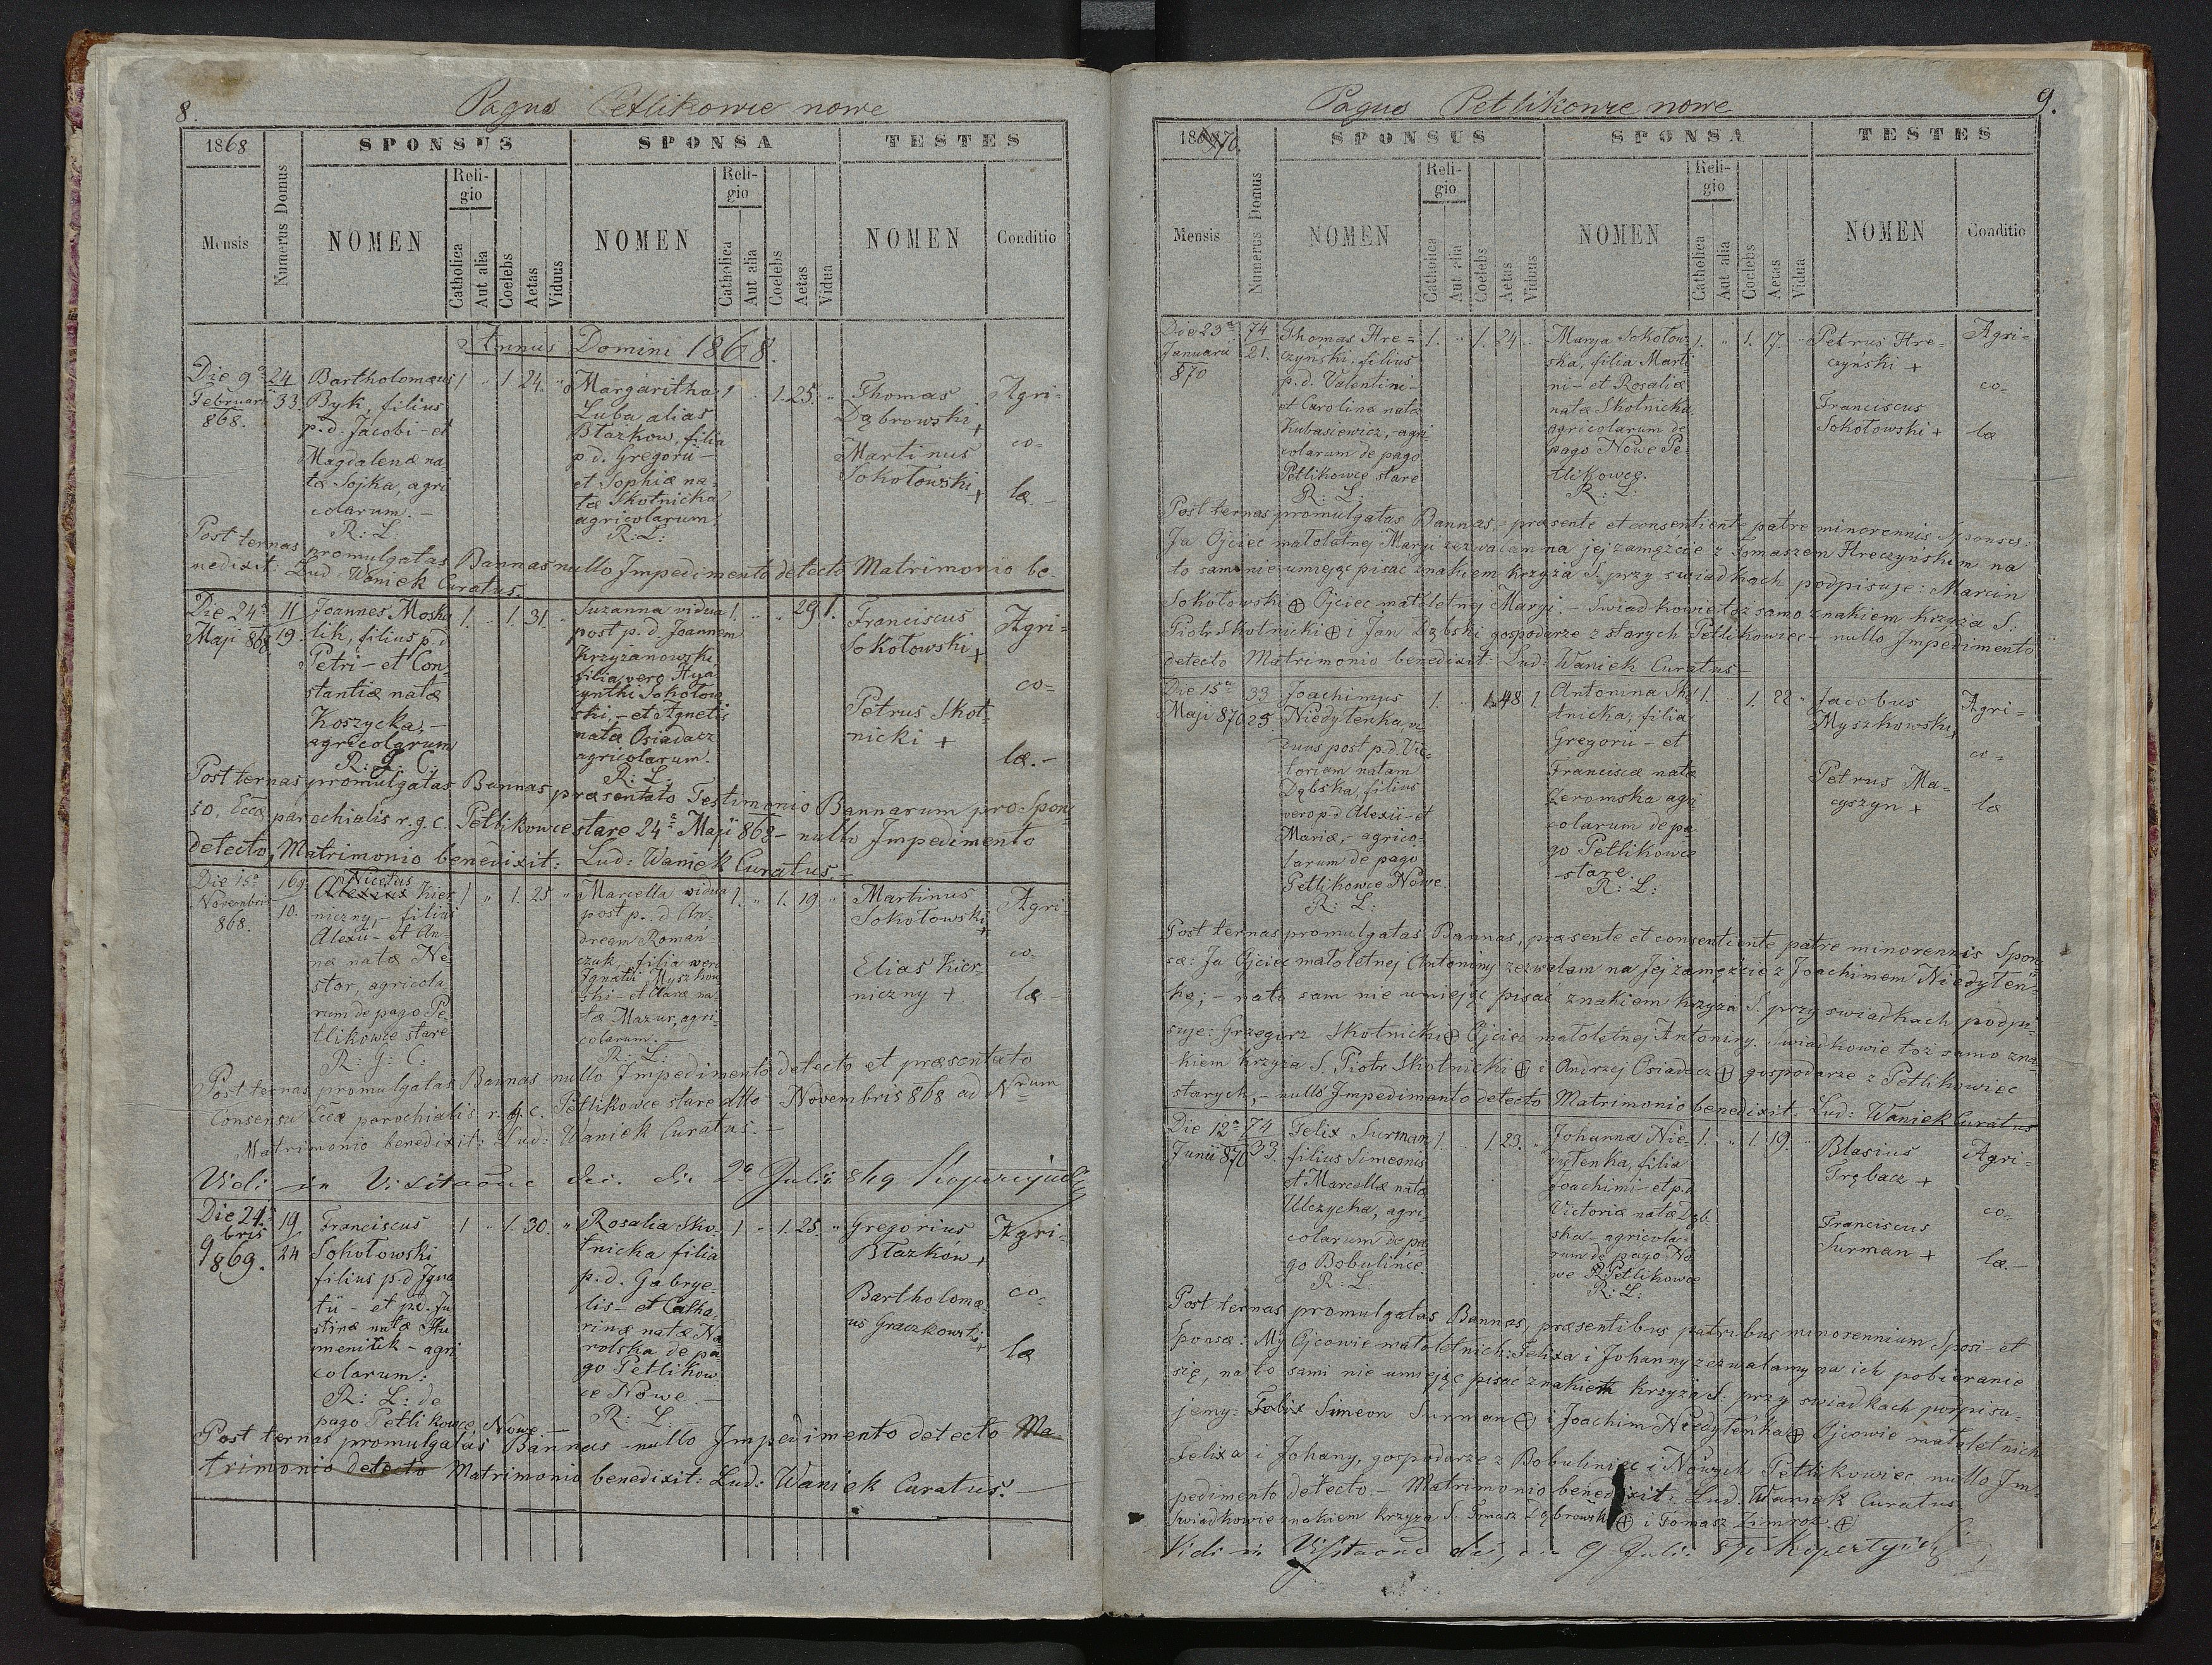 8.
Pagus Petlikowce nowe
1868
SPONSUS
SPONSA
TESTES
Mensis
Numerus Domus
NOMEN
Religio
Catholica
Aut alia
Coelebs
Aetas
Viduus
NOMEN
Religio
Catholica
Aut alia
Coelebs
Aetas
Vidua
NOMEN
Conditio
Annus Domini 1868.
Die 9a
Februarii
868.
24
33.
Bartholomæus
Byk, filius
p. d. Jacobi - et
Magdalenæ na
tæ Sojka, agri
colarum. -
R: L.
1 " 1 24. "
Margaritha
Luba alias
Błazkow, filia
p. d. Gregorii -
et Sophiæ na-
tæ Skotnicka
agricolarum.
R: L:
1 " 1. 25. "
Thomas
Dąbrowski +
Martinus
Sokołowski +
Agri-
co-
læ. -
Post ternas promulgatas Bannas nullo Impedimento detecto Matrimonio be-
nedixit: Lud: Waniek Curatus.
Die 24a
Maji 868
11
19.
Joannes Moska
lik, filius p. d.
Petri - et Con
stantiæ natæ
Koszycka, -
agricolarum
R: G: C.
1. " 1. 31. "
Suzanna vidua
post p. d. Joannem
Krzyżanowski,
filia vero Hya
cynthi Sokołow
ski, - et Agnetis
natæ Osiadacz
agricolarum.
R: L.
1. " " 29 1.
Franciscus
Sokołowski +
Petrus Skot-
nicki +
Agri-
co-
læ. -
Post ternas promulgatas Bannas præsentato Testimonio Bannarum pro Spon
so, Eccæ parochialis r. g. c. Petlikowce stare 24a Maji 868 - nullo Impedimento
detecto, Matrimonio benedixit: Lud: Waniek Curatus. -
Die 15a
Novembris
868.
169.
10.
Nicetas
Alexius Kier
niczny, - filius
Alexii - et An-
næ natæ Ne
stor, agricola
rum de pago Pe
tlikowce stare
R: G: C:
1 " 1. 25. "
Marcella vidua
post p. d. An-
dream Roman-
czuk, filia vero
Ignatii Myszkow
ski - et Claræ na-
tæ Mazur, agri-
colarum. -
R: L:
1. " 1. 19. "
Martinus
Sokołowski +
Elias Kier-
niczny +
Agri-
co-
læ. -
Post ternas promulgatas Bannas nullo Impedimento detecto et præsentato
Consensu Eccæ parochialis r. g. c. Petlikowce stare dtto Novembris 868 ad Nrum
Matrimonio benedixit: Lud: Waniek Curatus. -
Vidi in Visitaone die 2a Julii 869
Die 24
9bris
1869.
19
24
Franciscus
Sokołowski
filius p. d. Igna
tii - et p. d. Ju
stinæ natæ Hu
menitek - agri
colarum:
R: L: de
pago Petlikowce Nowe. -
1 " 1. 30. "
Rosalia Sko-
tnicka filia
p. d. Gabrye-
lis - et Catha
rinæ natæ Na
rolska de pa
go Petlikow
ce Nowe. -
R: L:
1 " 1. 25. "
Gregorius
Błazków +
Bartholomæ-
us Graczkowski +
Agri-
co-
læ
Post ternas promulgatas Bannas nullo Impedimento detecto Ma-
trimonio detecto Matrimonio benedixit: Lud: Waniek Curatus. -
9.
Pagus Petlikowce nowe
1870.
SPONSUS
SPONSA
TESTES
Mensis
Numerus Domus
NOMEN
Religio
Catholica
Aut alia
Coelebs
Aetas
Viduus
NOMEN
Religio
Catholica
Aut alia
Coelebs
Aetas
Vidua
NOMEN
Conditio
Die 23a
Januarii
870
74
21.
Thomas Hre-
czyński, filius
p. d. Valentini -
et Carolinæ natæ
Kubasiewicz, - agri
colarum de pago
Petlikowce stare
R: L:
1. " 1. 24. "
Marya Sokołow
ska, filia Marti
ni - et Rosaliæ
natæ Skotnicka
agricolarum de
pago Nowe Pe
tlikowce.
R: L:
1. " 1. 17. "
Petrus Hre-
czyński +
Franciscus
Sokołowski +
Agri-
co-
læ
Post ternas promulgatas Bannas, præsente et consentiente patre minorennis Sponsæ:
Ja Ojciec małoletnej Maryi zezwalam na jej zamęźcie z Tomaszem Hreczyńskim na
to sam nie umiejąc pisać znakiem krzyża S. przy swiadkach podpisuje: Marcin
Sokołowski ⊕ Ojciec małoletnej Maryi. - Swiadkowie toż samo znakiem krzyża S:
Piotr Skotnicki ⊕ i Jan Dąbski gospodarze z starych Petlikowiec - nullo Impedimento
detecto Matrimonio benedixit: Lud: Waniek Curatus -
Die 15a
Maji 870
33
25.
Joachimus
Niedytenka, vi
duus post p. d. Vic-
toriam natam
Dąbska, filius
vero p. d. Alexii - et
Mariæ, - agrico-
larum de pago
Petlikowce Nowe.
R: L:
1. " 1. 48 1.
Antonina Sko
tnicka, filia
Gregorii - et
Franciscæ natæ
Żeromska agri
colarum de pa
go Petlikowce
stare.
R: L:
1. " 1. 22 "
Jacobus
Myszkowski +
Petrus Ma-
cyszyn +
Agri-
co-
læ
Post ternas promulgatas Bannas, præsente et consentiente patre minorennis Spon
sæ: Ja Ojciec małoletnej Antoniny zezwalam na Jej zamęźcie z Joachimem Niedyten-
ką; - na to sam nie umiejąc pisać znakiem krzyża S. przy swiadkach podpi-
suje: Grzegorz Skotnicki ⊕ Ojciec małoletnej Antoniny. Swiadkowie toż samo zna-
kiem krzyża S. Piotr Skotnicki ⊕ i Andrzej Osiadacz ⊕ gospodarze z Petlikowiec
starych, - nullo Impedimento detecto Matrimonio benedixit: Lud: Waniek Curatus
Die 12a
Junii 870
74
33.
Felix Surman
filius Simeonis
et Marcellæ natæ
Ulczycka, agri-
colarum de pa-
go Bobulińce.
R: L.
1. " 1. 23. "
Johanna Nie-
dytenka, filia
Joachimi - et p. d.
Victoriæ natæ Dąb-
ska - agricola-
rum de pago No
we Petlikowce
R: L:
1. " 1. 19. "
Blasius
Trębacz +
Franciscus
Surman +
Agri-
co-
læ. -
Post ternas promulgatas Bannas, præsentibus patribus minorennium Sponsi - et
Sponsæ: My Ojcowie małoletnich: Felixa i Johanny zezwalamy na ich pobieranie
się, na to sami nie umiejąc pisać znakiem krzyża S. przy swiadkach podpisu-
jemy: Felix Simeon Surman ⊕ i Joachim Niedytenka ⊕ Ojcowie małoletnich
Felixa i Johany, gospodarze z Bobuliniec i Nowych Petlikowiec, nullo Im-
pedimento detecto - Matrimonio benedixit: Lud: Waniek Curatus
Swiadkowie znakiem krzyża S: Tomasz Dąbrowski ⊕ i Tomasz Zimroz ⊕
Vidi in Visitaone 9 Julii 870